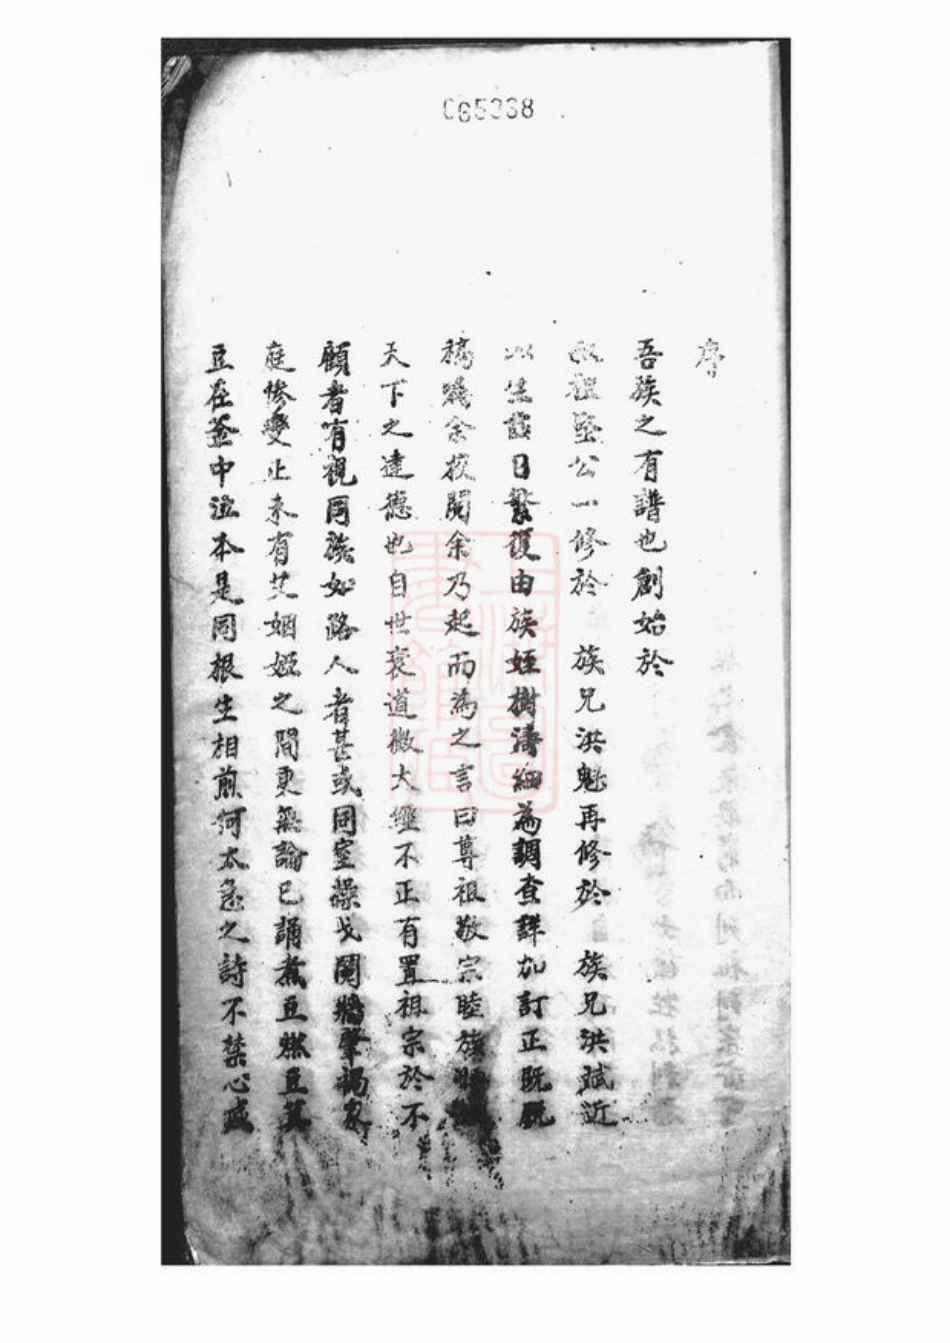 065338
序
吾族之有譜也創始於
祖墾公一修於 族兄洪魁再修於 族兄洪斌近
以生齒日繁復由族姪樹濤細為調查詳加訂正既脫
稿囑余校閱余乃起而為之言曰尊祖敬宗睦族
天下之達德也自世衰道微大經不正有置祖宗於不
顧者有視同族如路人者甚或同室操戈鬩牆肇禍家
庭慘變止未有艾姻婭之間更無論已誦煮豆燃豆萁
豆在釜中泣本是同根生相煎何太急之詩不禁心戚